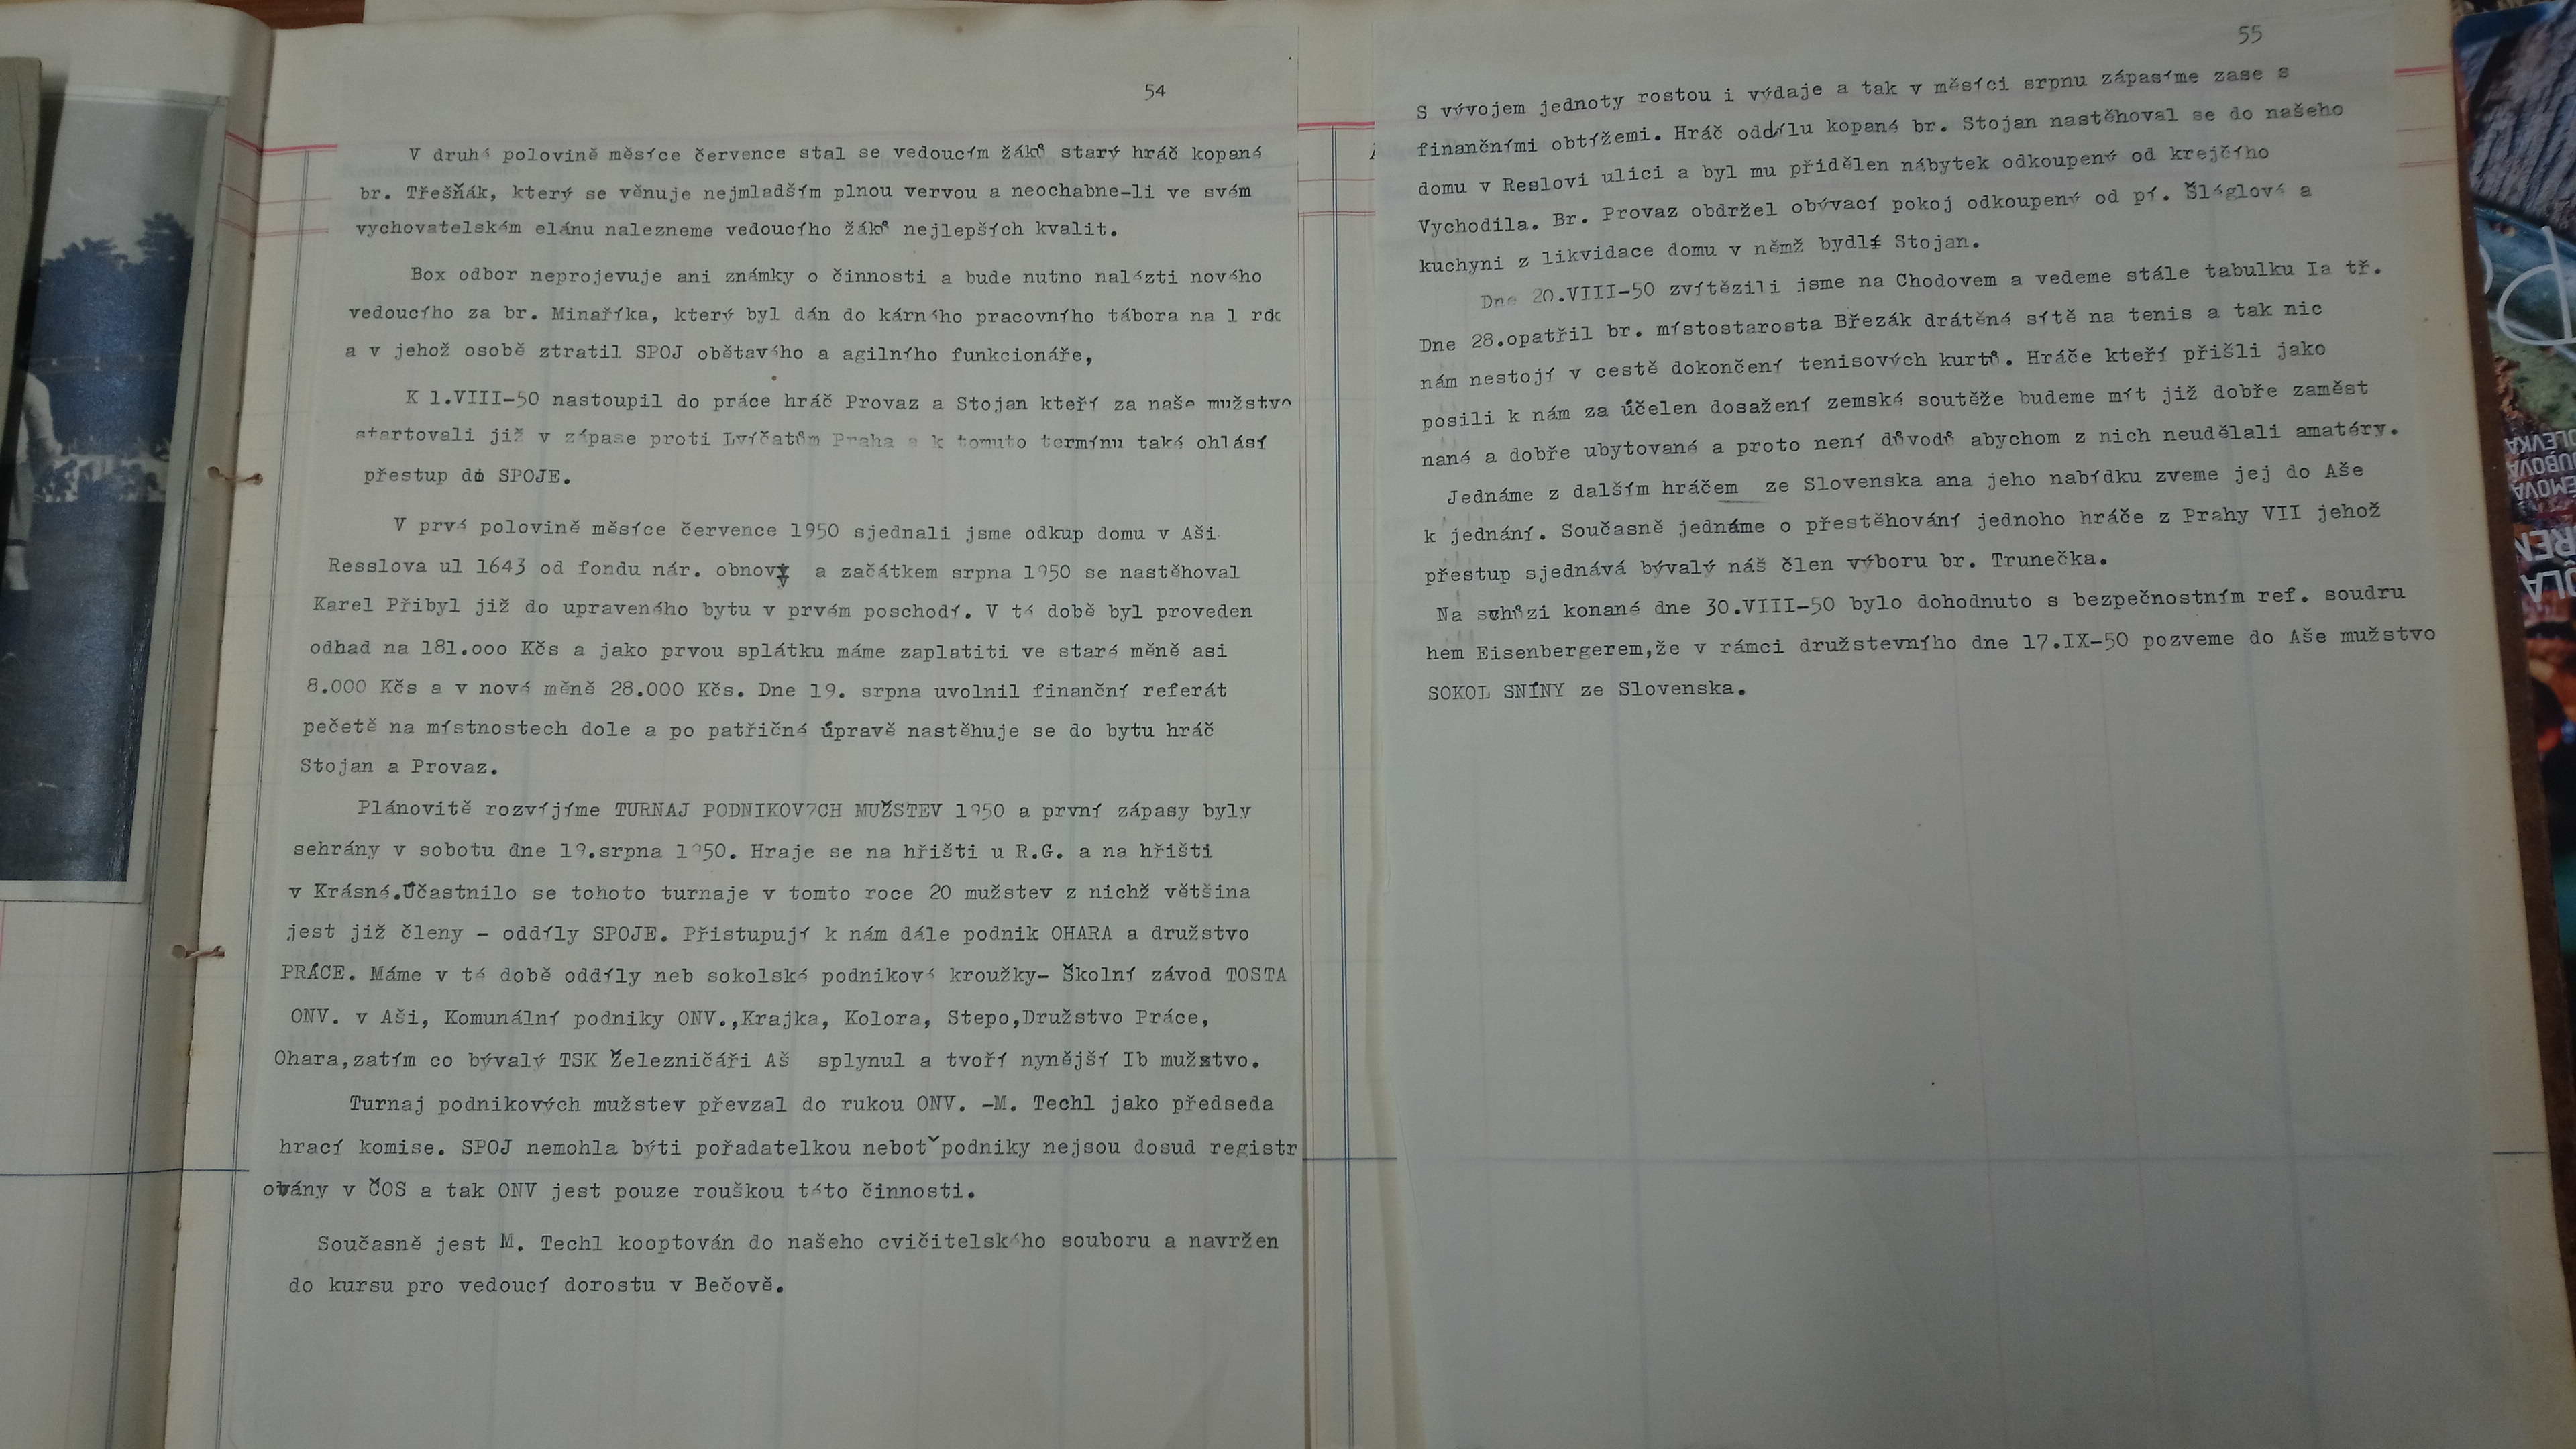 54
V druhé polovině měsíce července stal se vedoucím žáků starý hráč kopané
br. Třešňák, který se věnuje nejmladším plnou vervou a neochabne-li ve svém
vychovatelském elánu nalezneme vedoucího žáků nejlepších kvalit.
Box odbor neprojevuje ani známky o činnosti a bude nutno nalézti nového
vedoucího za br. Minaříka, který byl dán do kárného pracovního tábora na 1 rok
a v jehož osobě ztratil SPOJ obětavého a agilního funkcionáře,
K 1.VIII-50 nastoupil do práce hráč Provaz a Stojan kteří za naše mužstvo
startovali již v zápase proti Lvíčatům Praha a k tomuto termínu také ohlásí
přestup do SPOJE.
V prvé polovině měsíce července 1950 sjednali jsme odkup domu v Aši
Resslova ul 1643 od fondu nár. obnovy a začátkem srpna 1950 se nastěhoval
Karel Přibyl již do upraveného bytu v prvém poschodí. V té době byl proveden
odhad na 181.ooo Kčs a jako prvou splátku máme zaplatiti ve staré měně asi
8.000 Kčs a v nové měně 28.000 Kčs. Dne 19. srpna uvolnil finanční referát
pečetě na místnostech dole a po patřičné úpravě nastěhuje se do bytu hráč
Stojan a Provaz.
Plánovitě rozvíjíme TURNAJ PODNIKOV7CH MUŽSTEV 1950 a první zápasy byly
sehrány v sobotu dne 19.srpna 1950. Hraje se na hřišti u R.G. a na hřišti
v Krásné.Účastnilo se tohoto turnaje v tomto roce 20 mužstev z nichž většina
jest již členy - oddíly SPOJE. Přistupují k nám dále podnik OHARA a družstvo
PRÁCE. Máme v té době oddíly neb sokolské podnikové kroužky- Školní závod TOSTA
ONV. v Aši, Komunální podniky ONV.,Krajka, Kolora, Stepo,Družstvo Práce,
Ohara,zatím co bývalý TSK Železničáři Aš splynul a tvoří nynější Ib mužstvo.
Turnaj podnikových mužstev převzal do rukou ONV. -M. Techl jako předseda
hrací komise. SPOJ nemohla býti pořadatelkou neboť podniky nejsou dosud registr
ovány v ČOS a tak ONV jest pouze rouškou této činnosti.
Současně jest M. Techl kooptován do našeho cvičitelského souboru a navržen
do kursu pro vedoucí dorostu v Bečově.
55
S vývojem jednoty rostou i výdaje a tak v měsíci srpnu zápasíme zase s
finančními obtížemi. Hráč oddílu kopané br. Stojan nastěhoval se do našeho
domu v Reslovi ulici a byl mu přidělen nábytek odkoupený od krejčího
Vychodila. Br. Provaz obdržel obývací pokoj odkoupený od pí. Šléglové a
kuchyni z likvidace domu v němž bydlí Stojan.
Dne 20.VIII-50 zvítězili jsme na Chodovem a vedeme stále tabulku Ia tř.
Dne 28.opatřil br. místostarosta Březák drátěné sítě na tenis a tak nic
nám nestojí v cestě dokončení tenisových kurtů. Hráče kteří přišli jako
posili k nám za účelen dosažení zemské soutěže budeme mít již dobře zaměst
nané a dobře ubytované a proto není důvodů abychom z nich neudělali amatéry.
Jednáme z dalším hráčem ze Slovenska ana jeho nabídku zveme jej do Aše
k jednání. Současně jednáme o přestěhování jednoho hráče z Prahy VII jehož
přestup sjednává bývalý náš člen výboru br. Trunečka.
Na schůzi konané dne 30.VIII-50 bylo dohodnuto s bezpečnostním ref. soudru
hem Eisenbergerem,že v rámci družstevního dne 17.IX-50 pozveme do Aše mužstvo
SOKOL SNÍNY ze Slovenska.